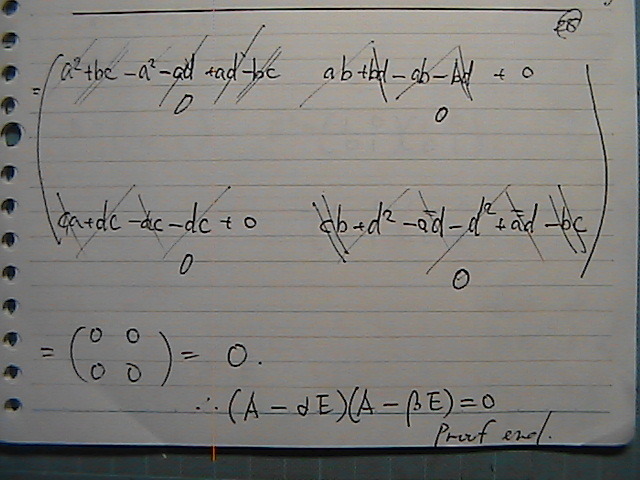 = ( a² + bc - a² - ad + ad - bc ab + bd - ab - bd + 0
0 0
ca + dc - ac - dc + 0 cb + d² - ad - d² + ad - bc )
0 0
= ( 0 0
0 0 ) = 0.
∴ (A - αE)(A - βE) = 0
Proof end.